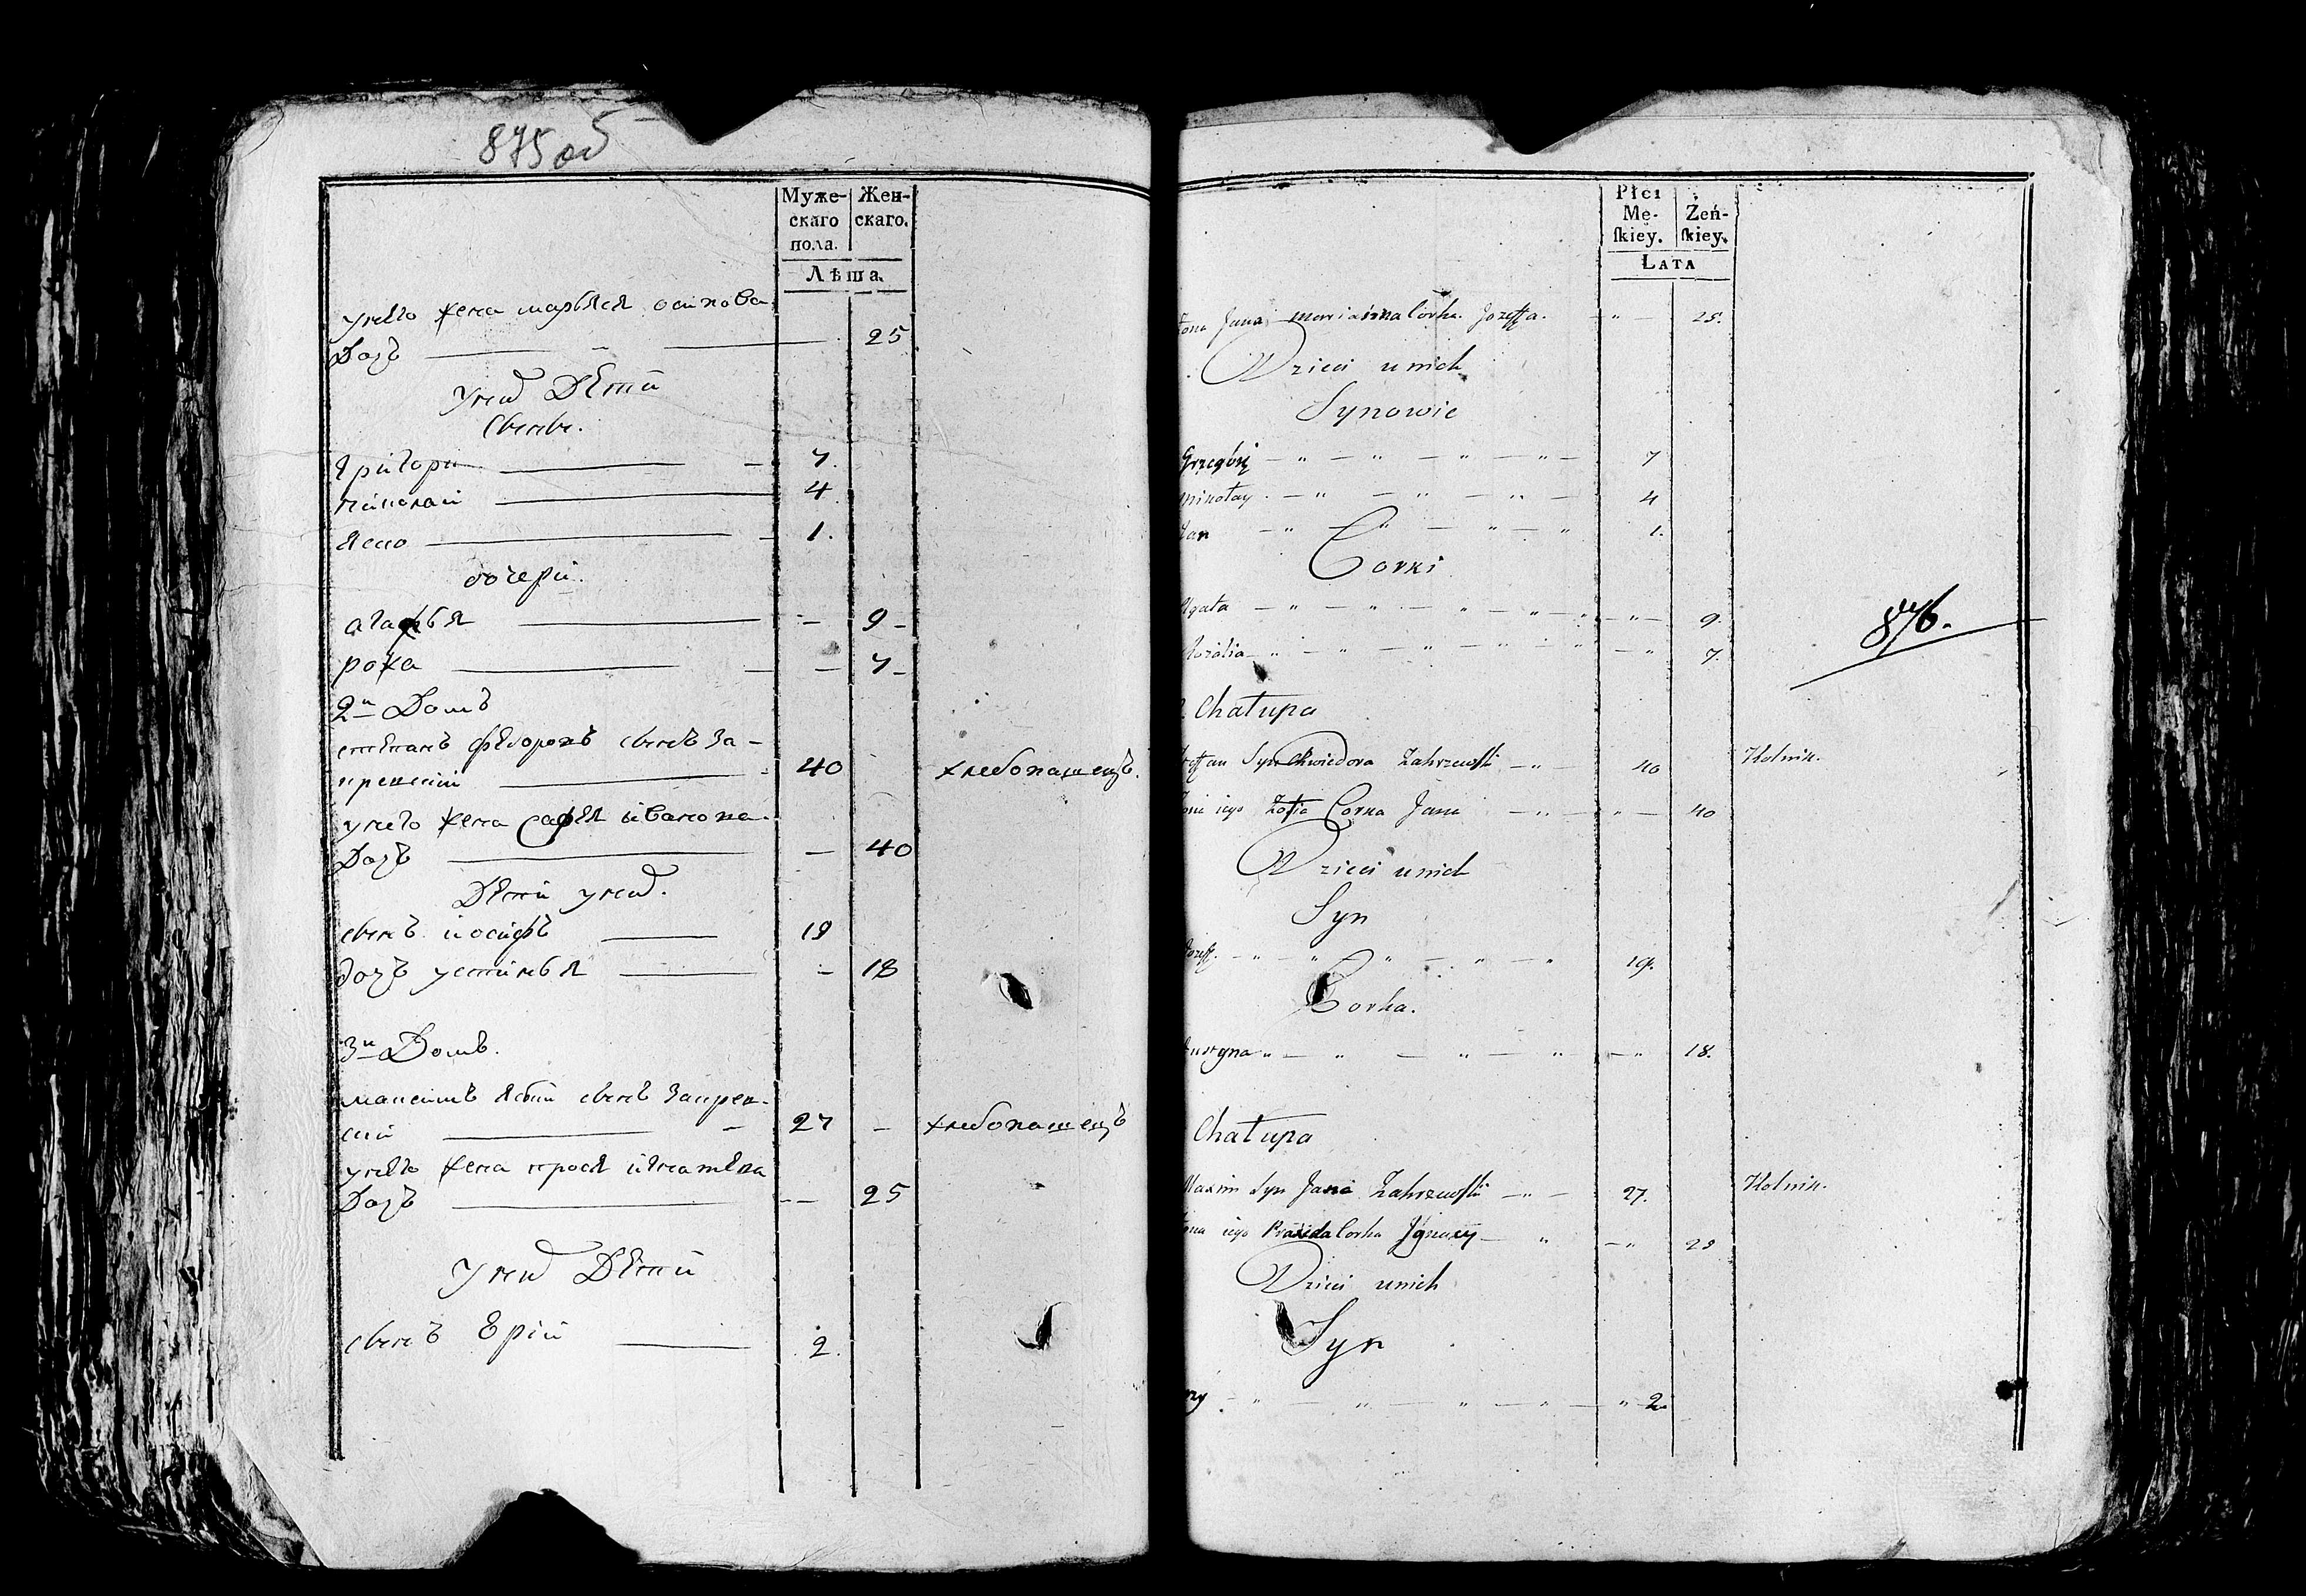 875 об
Муже-
скаго
пола.
Жен-
скаго.
Лѣта.
унего жена марьяся осипова
Дочъ 25
Унид Дѣти
Сынвы.
Григори 7.
Николай 4
Ясио 1.
дочери.
агафья 9
рожа 7
2й Домъ
степанъ федоровъ сынъ За-
кревскій 40 хлебопашецъ.
унего жена сафея иванова
Дочъ 40
Дѣти унид.
сынъ иосифъ 19
дочъ устинья 18
3й Домъ.
максимъ сынъ Закрев-
скій 27 хлебопашецъ
унего жена прося игнатева
Дочъ 25
Унид Дѣти
сынъ Юрій 2.
Płci
Mę-
skiey.
Żeń-
skiey.
LATA
Zona Jana marcianna Corka Jozeffa. 25.
Dzieci unich
Synowie
Grzegórz 7
Mikołay 4
Jan 1.
Corki
Agata 9.
Rozalia 7.
876.
2. Chałupa
Steffan Syn Chwiedora Zakrzewski 40 Rolnik.
Zona iego Zofia Corka Jana 40
Dzieci unich
Syn
Jozeff. 19.
Corka.
Justyna 18.
Chałupa
Maxim Syn Jana Zakrzewski 27. Rolnik.
Zona iego Praxeda Corka Jgnacy 25
Dzieci unich
Syn
rzy 2.